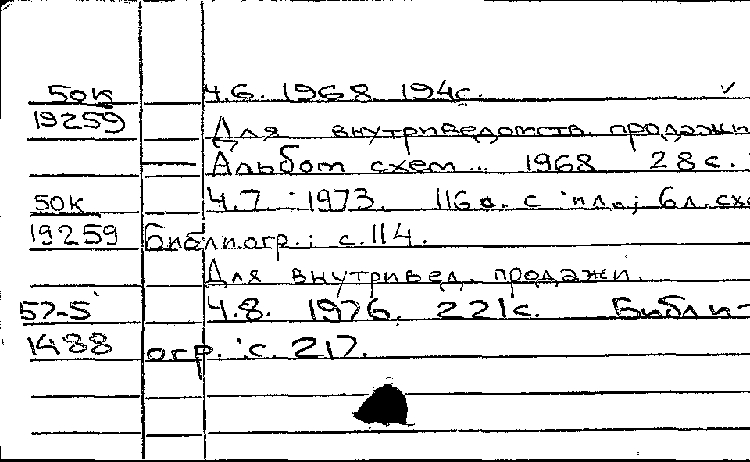 50к Ч.6. 1968 194с.
19259 Для внутриведомств. продажи
Альбом схем .. 1968 28с.
50к Ч.7. 1973. 116с. с илл.; 6л.схе
19259 Библиогр.: с.114.
Для внутривед. продажи.
57-5 Ч.8. 1976. 221с. Библи-
1488 огр. с. 217.